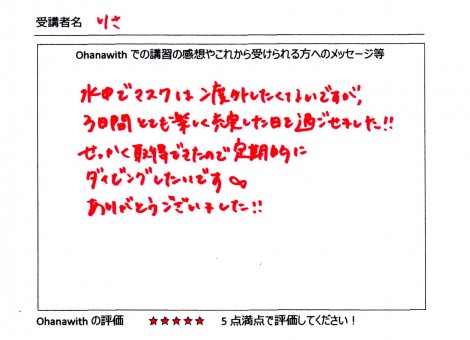 受講者名 りさ
Ohanawith での講習の感想やこれから受けられる方へのメッセージ等
水中でマスクは2度外したくないですが、
3日間とても楽しく充実した日を過ごせました!!
せっかく取得できたので定期的に
ダイビングしたいです∞
ありがとうございました!!
Ohanawith の評価 ★★★★★ 5 点満点で評価してください!